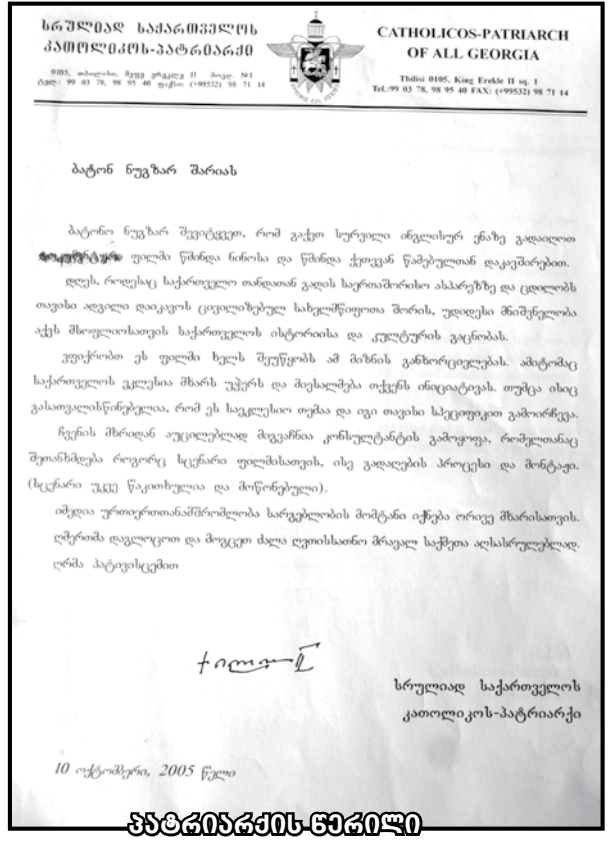 სრულიად საქართველოს
კათოლიკოს-პატრიარქი
0105, თბილისი, მეფე ერეკლე II მოედ. №1
ტელ: 99 03 78, 98 95 40 ფაქსი: (+99532) 98 71 14
CATHOLICOS-PATRIARCH
OF ALL GEORGIA
Tbilisi 0105, King Erekle II sq. 1
Tel.:99 03 78, 98 95 40 FAX: (+99532) 98 71 14
ბატონ ნუგზარ შარიას
ბატონო ნუგზარ შევიტყვეთ, რომ გაქვთ სურვილი ინგლისურ ენაზე გადაიღოთ
ფილმი წმინდა ნინოსა და წმინდა ქეთევან წამებულთან დაკავშირებით.
დღეს, როდესაც საქართველო თანდათან გადის საერთაშორისო ასპარეზზე და ცდილობს
თავისი ადგილი დაიკავოს ცივილიზებულ სახელმწიფოთა შორის, უდიდესი მნიშვნელობა
აქვს მსოფლიოსათვის საქართველოს ისტორიისა და კულტურის გაცნობას.
ვფიქრობთ ეს ფილმი ხელს შეუწყობს ამ მიზნის განხორციელებას. ამიტომაც
საქართველოს ეკლესია მხარს უჭერს და მიესალმება თქვენს ინიციატივას. თუმცა ისიც
გასათვალისწინებელია, რომ ეს საეკლესიო თემაა და იგი თავისი სპეციფიკით გამოირჩევა.
ჩვენის მხრიდან აუცილებლად მიგვაჩნია კონსულტანტის გამოყოფა, რომელთანაც
შეთანხმდება როგორც სცენარი ფილმისათვის, ისე გადაღების პროცესი და მონტაჟი.
(სცენარი უკვე წაკითხულია და მოწონებული).
იმედია ურთიერთთანამშრომლობა სარგებლობის მომტანი იქნება ორივე მხარისათვის.
ღმერთმა დაგლოცოთ და მოგცეთ ძალა ღვთისსათნო მრავალ საქმეთა აღსასრულებლად.
ღრმა პატივისცემით
სრულიად საქართველოს
კათოლიკოს-პატრიარქი
10 ოქტომბერი, 2005 წელი
პატრიარქის წერილი